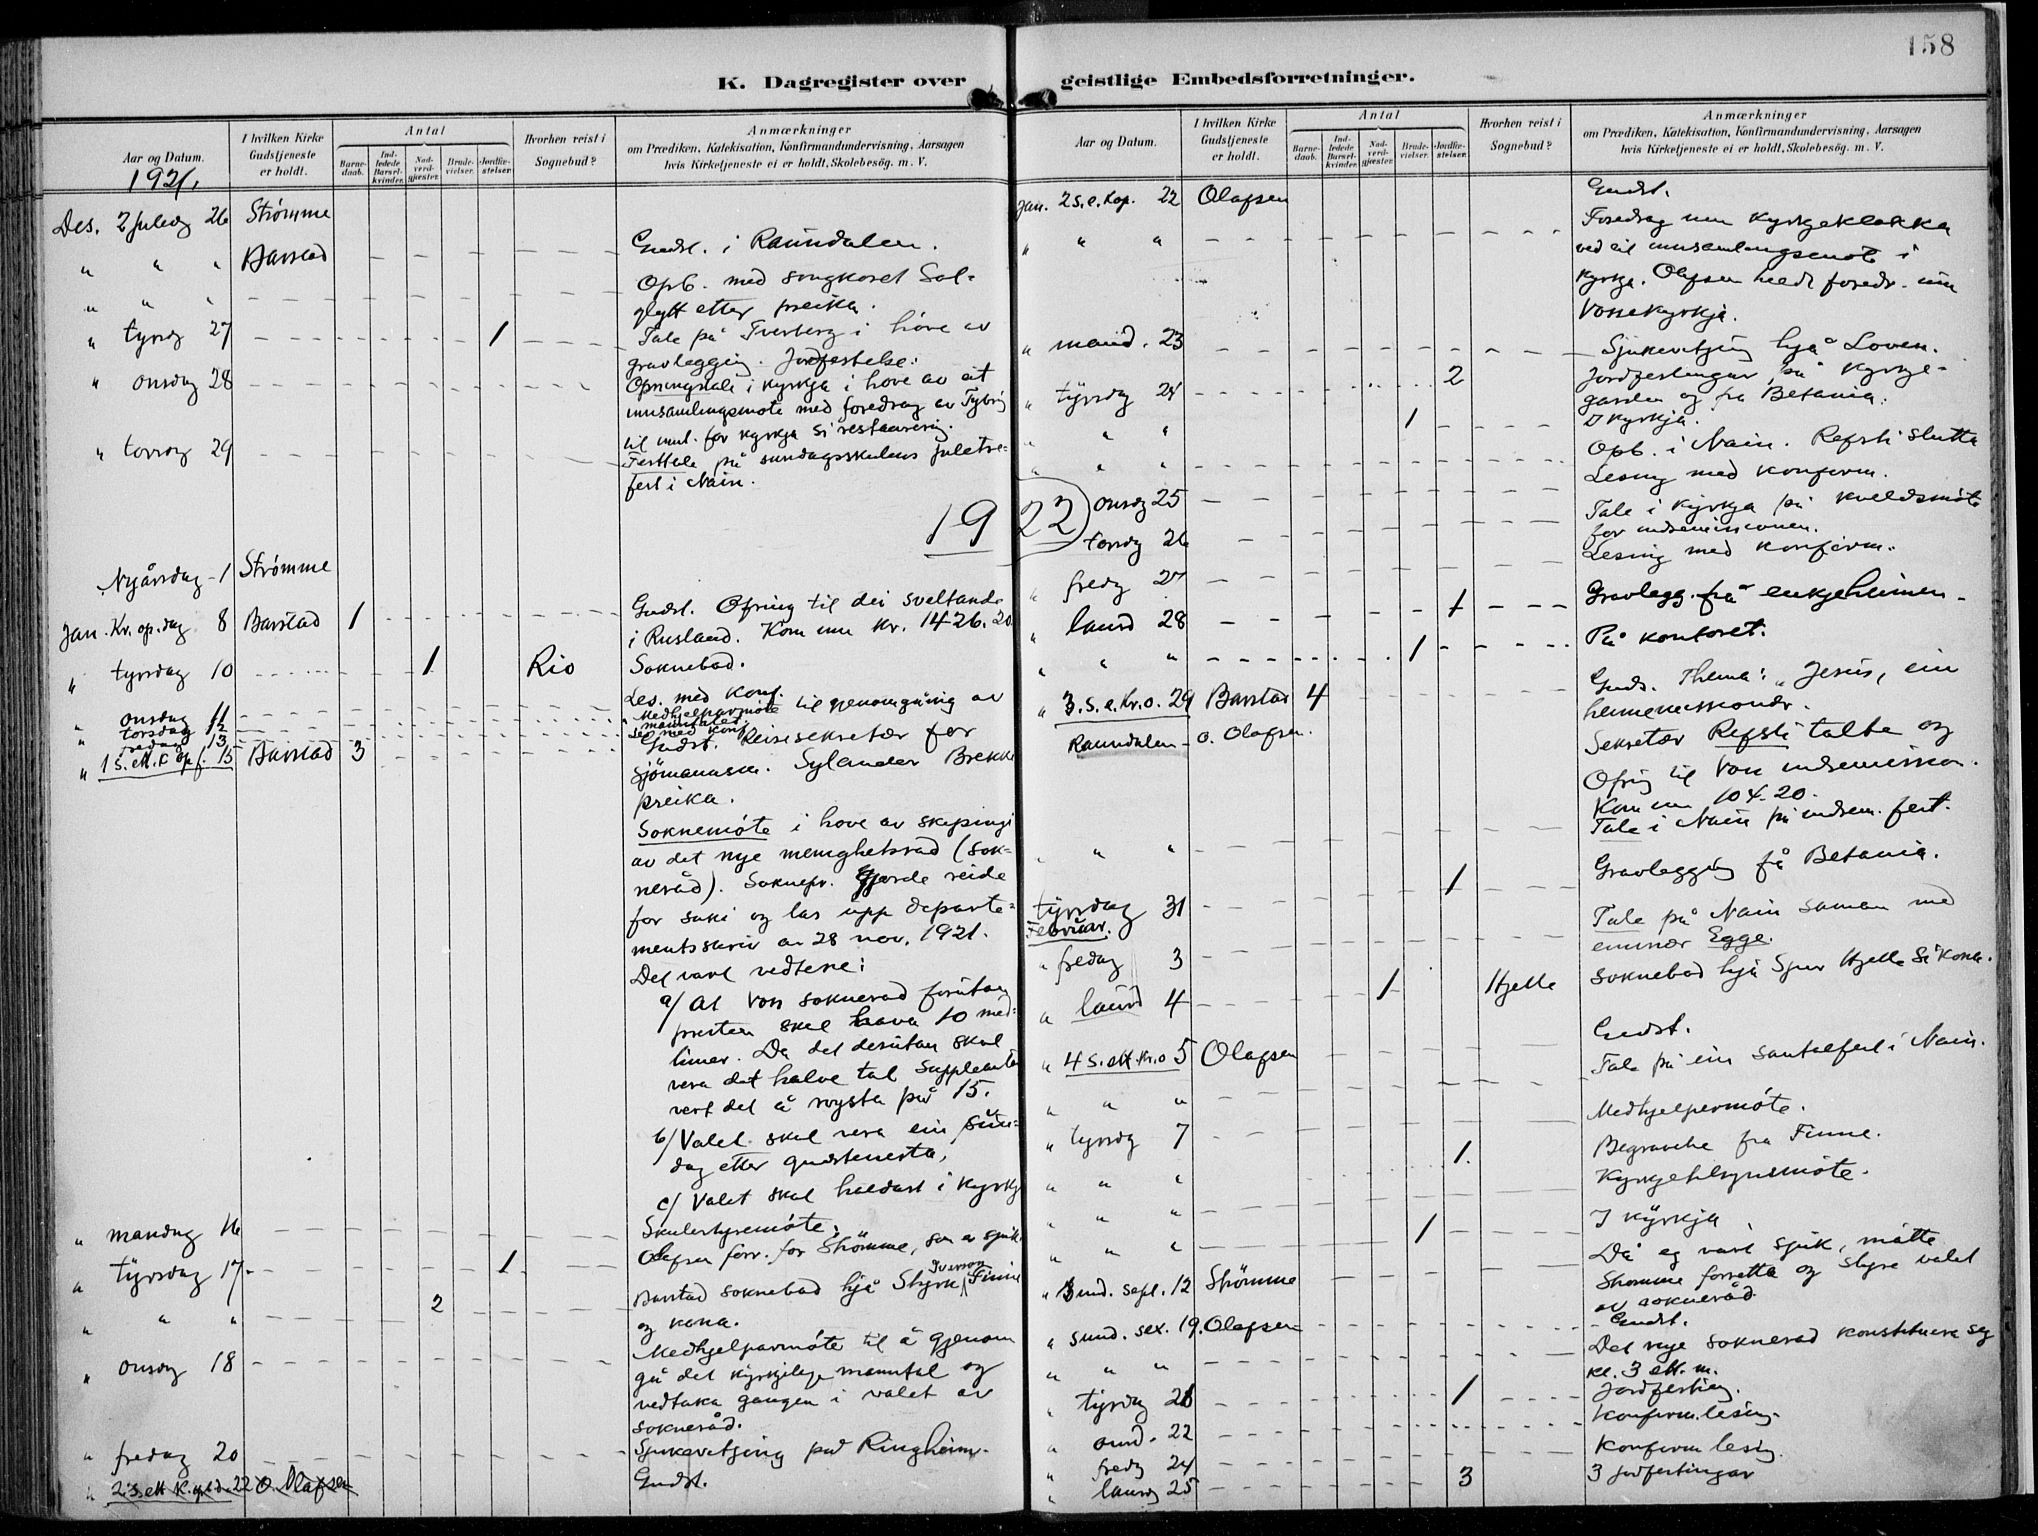 158
K. Dagregister over geistlige Embedsforretninger.
Aar og Datum.
I hvilken Kirke Gudstjeneste er holdt.
Antal
Barnedaab.
Indledede Barselkvinder.
Nadverdgjester.
Brudevielser.
Jordfæstelser.
Hvorhen reist i Sognebud?
Anmærkninger
om Prædiken, Katekisation, Konfirmandundervisning, Aarsagen
hvis Kirketjeneste ei er holdt, Skolebesög. m. V.
1921.
Des. 2 juledg 26 Strømme
" " " Barstad Gudst. i Raundalen.
" " " Opb. med songkoret Sol-
glytt etter preika.
" tyrsdg 27 1 Tale på Tverberg i høve av
gravlegging. Jordfestelse.
" onsdag 28 Opningstale i kyrkja i hove av eit
innsamlingsmøte med foredrag av
til inntekt for kyrkja si restaurering.
" torsdg 29 Festtale på sundagsskulens juletre-
fest i Nain.
1922
Nyårsdag - 1 Strømme
Jan. Kr. op. dag 8 Barstad 1 Gudst. Ofring til dei sveltande
i Rusland. Kom inn kr. 1426.20
" tyrsdag 10 1 Rio Soknebod.
" onsdag 11 Les. med konf.
" torsdag 12 Medhjelparmøte til gjenomgåing av
manntalet.
" fredag 13 Les med konf.
" 1 s. ett. Kr. op. f. 15 Barstad 3 Gudst. Reisesekretær for
sjømannsm. Sylander Brekke
preika.
Soknemøte i hove av skiping
av det nye menighetsråd (sok-
neråd). Soknepr. gjorde reide
for saki og las upp departe-
mentsskriv av 28 nov. 1921.
Det vart vedteke:
a/ At Voss sokneråd forutan
presten skal hava 10 med-
limer. Da det desutan skal
vera det halve tal supleanter
vert det å røysta på 15.
b/ Valet skal vera ein sun-
dag etter gudstenesta.
c/ Valet skal haldast i kyrkja
" mandag 16 Skulestyremøte.
" tyrsdag 17 1 Olafsen forr. for Strømme, som er sjuk
" " " 2 Barstad soknebod hjå Styrk Iverson Finne
og kona.
" onsdg 18 Medhjelparmøte til å gjenom
gå det kyrkjelege manntal og
vedtaka gangen i valet av
sokneråd.
" fredag 20 Sjukevitjing på Ringheim.
" 2 s. ett K. op. d. 22 O. Olafsen Gudst.
Aar og Datum.
I hvilken Kirke Gudstjeneste er holdt.
Antal
Barnedaab.
Indledede Barselkvinder.
Nadverdgjester.
Brudevielser.
Jordfæstelser.
Hvorhen reist i Sognebud?
Anmærkninger
om Prædiken, Katekisation, Konfirmandundervisning, Aarsagen
hvis Kirketjeneste ei er holdt, Skolebesög. m. V.
Jan. 2 s. e. Kop. 22 Olafsen Gudst.
" " " Foredrag um kyrkjeklokka
ved eit innsamlingsmøte i
kyrkja. Olafsen heldt foredr. um
Vossekyrkja.
" mand. 23 Sjukevitjing hjå Loven.
" tyrsdag 24 2 Jordfestingar på kyrkje-
garden og fra Betania.
" " " 1 I kyrkja.
" " " Opb. i Nain. Refsti slutta
" onsdg 25 Lesing med konfirm.
Tale i kyrkja på kveldsmøte
for indremissionen.
torsdg 26 Lesing med konfirm.
" fredg 27 1 Gravlegg. frå enkjeheimen.
" laurd 28
" " " 1 På kontoret.
" 3. s. e. Kr. o. 29 Barstad 4 Guds. Thema: "Jesus, ein
heimemissionær.
Raundalen - O. Olafsen. Sekretær Refsti talte og
Ofring til Voss indremission.
Kom inn 104.20.
" " " Tale i Nain på indrem. fest.
tyrsdag 31 1 Gravlegging få Betania.
Februar.
" fredag 3 Tale på Nain saman med
emissær Egge.
" laurd 4 1 Hjelle Soknebod hjå Sjur Hjelle si kona.
" 4 s. ett. Kr. o 5 Olafsen Gudst.
" " " Tale på ein santalfest i Nain.
" tyrsdg 7 Medhjelparmøte.
" " " 1. Begravelse fra Finne.
" " " Kyrkjetilsynsmøte.
" " " 1 I kyrkja
" Sund. sept. 12 Strømme Då eg vart sjuk, måtte
Strømme forretta og styre valet
av sokneråd.
" sund. sex. 19. Olafsen Gudst.
" " " Det nye sokneråd konstituera seg
kl. 3 ett. m.
" tyrsdg 21 1 Jordfesting.
" onsd. 22 Konfirm. lesing.
" fredg 24 Konfirm lesing.
" laurdg 25 3 3 jordfestingar